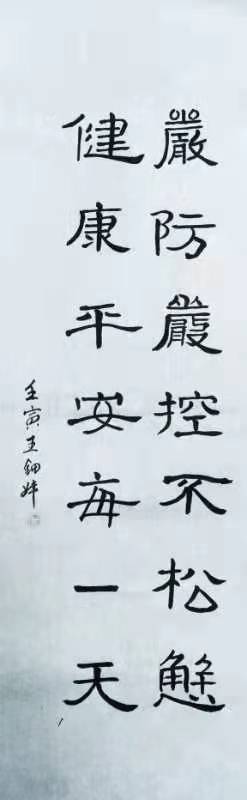 嚴防嚴控不松懈
健康平安每一天
壬寅王鈿妦